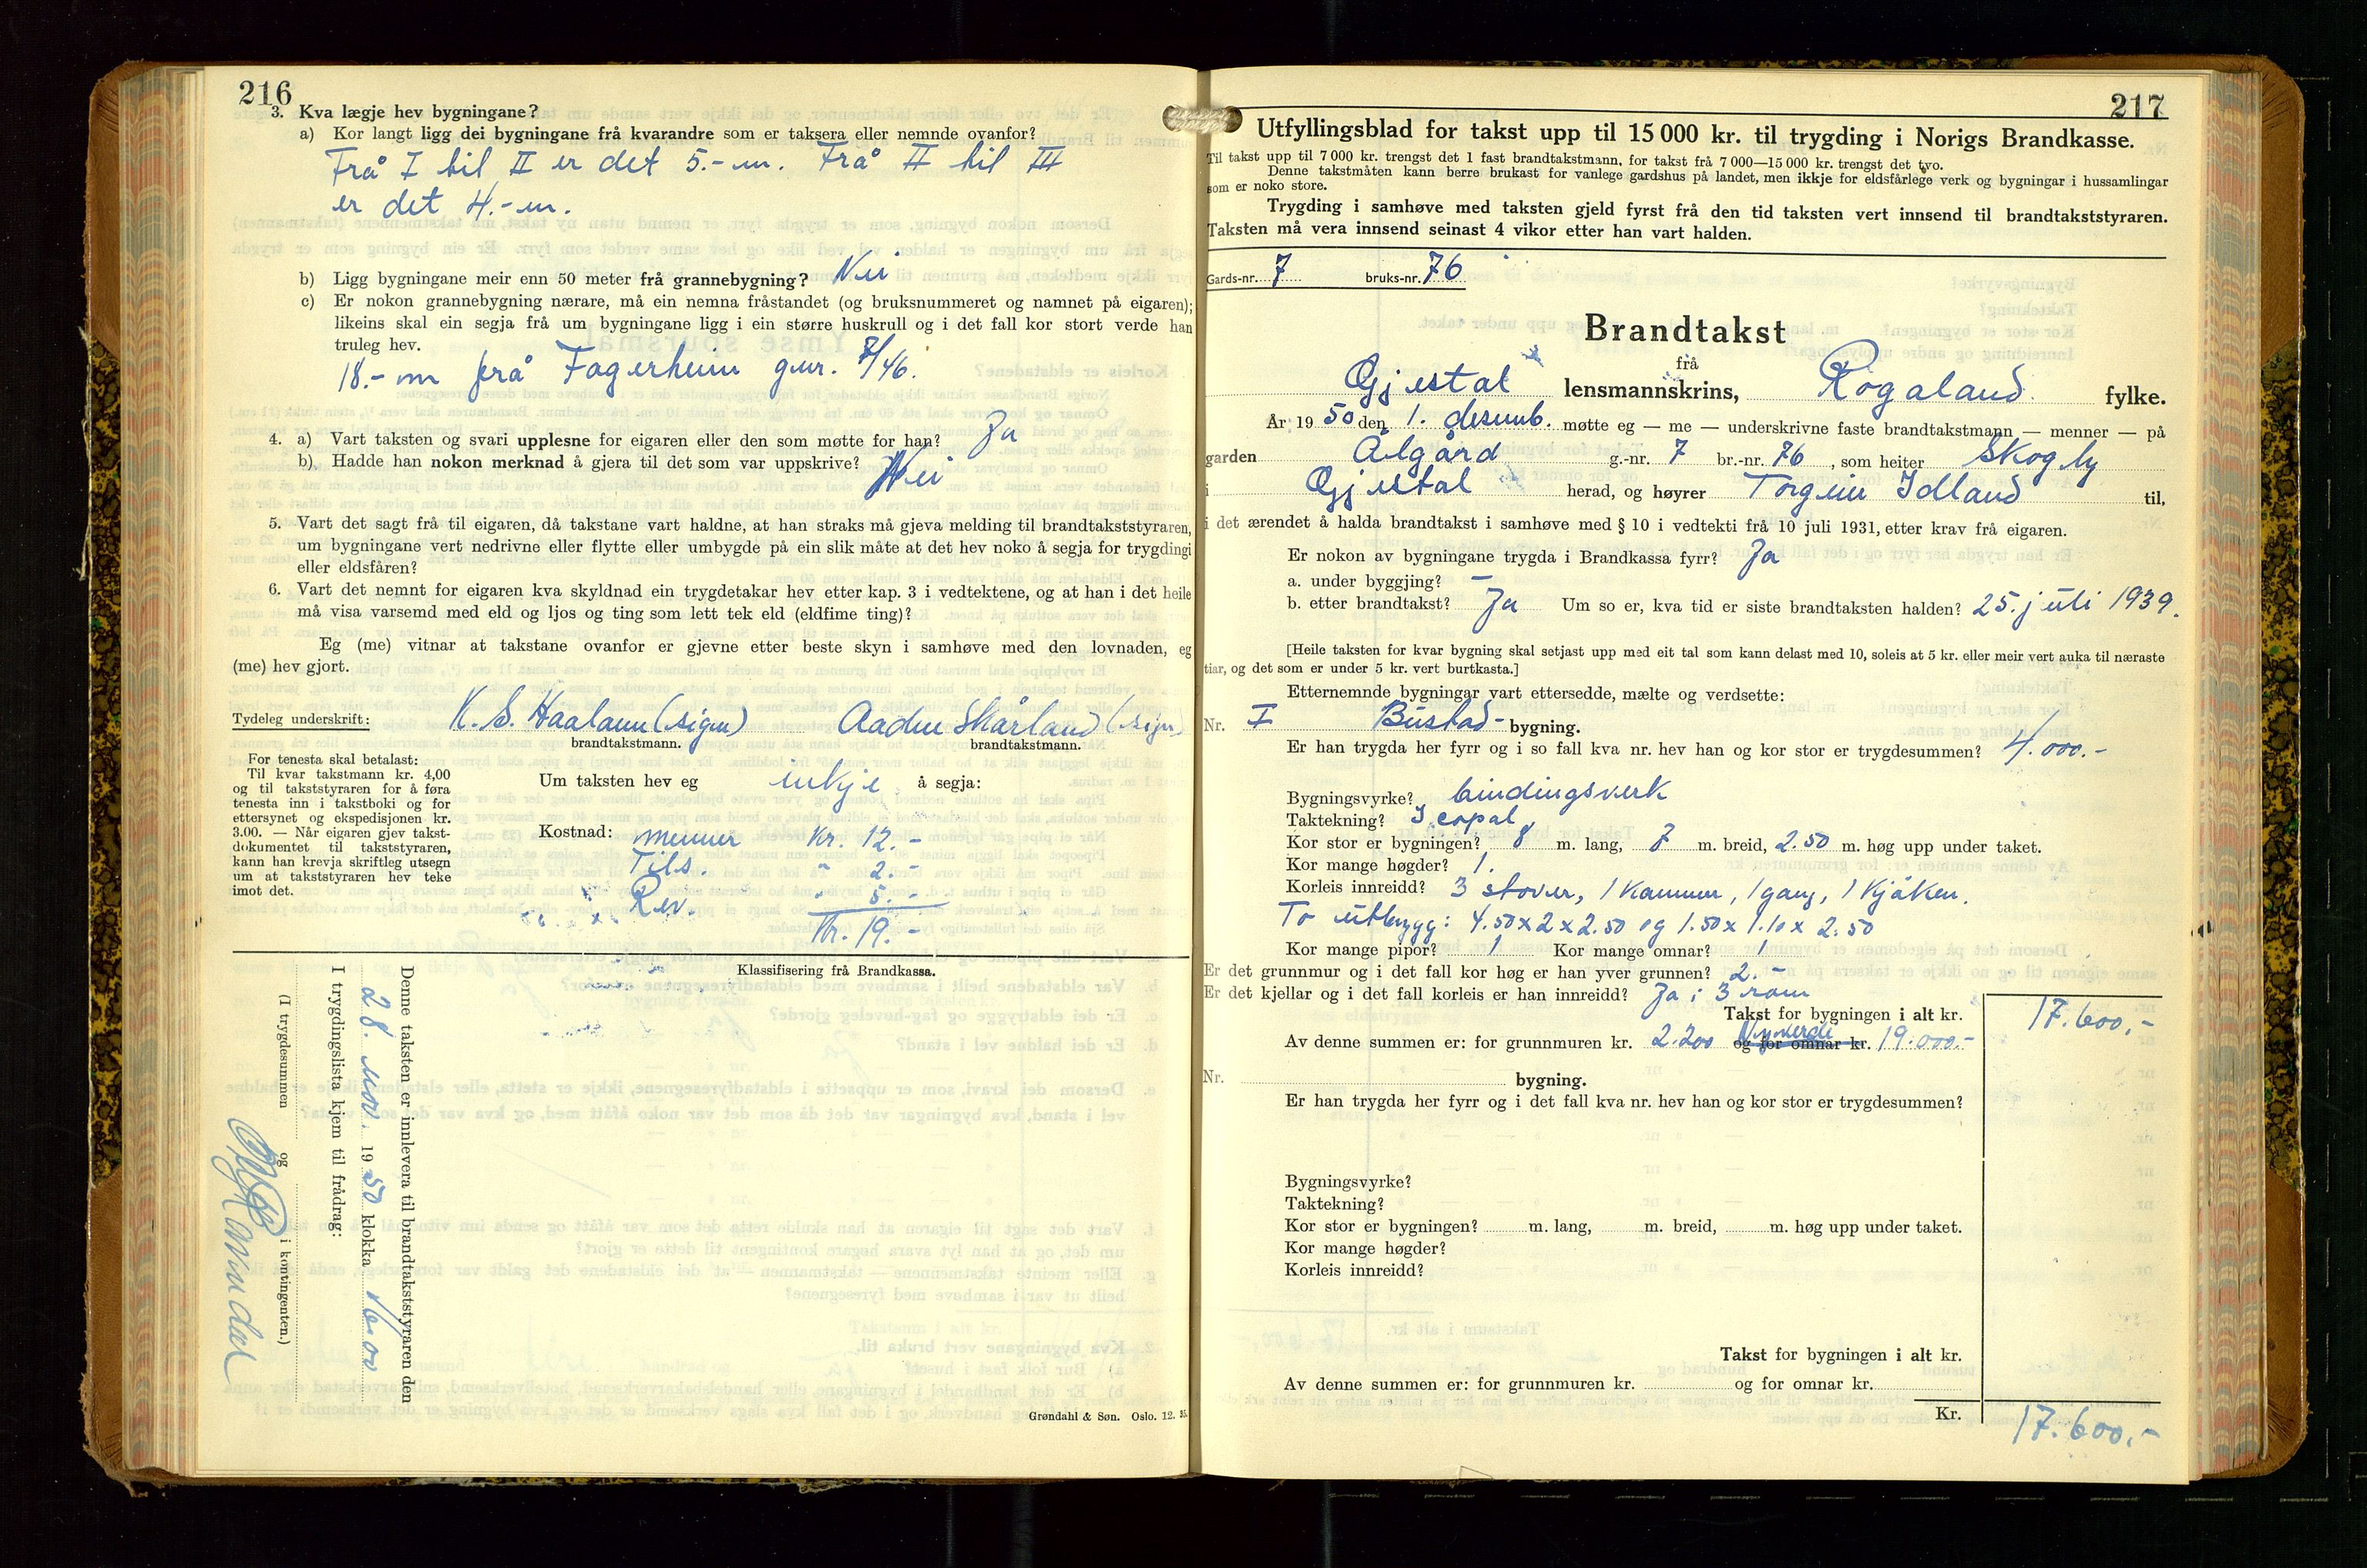 216
3. Kva lægje hev bygningane?
a) Kor langt ligg dei bygningane frå kvarandre som er taksera eller nemnde ovanfor?
Frå I til II er det 5.- m. Frå II til III
er det 4.- m.
b) Ligg bygningane meir enn 50 meter frå grannebygning? Nei
c) Er nokon grannebygning nærare, må ein nemna fråstandet (og bruksnummeret og namnet på eigaren);
likeins skal ein segja frå um bygningane ligg i ein større huskrull og i det fall kor stort verde han
truleg hev.
18.- m frå Fagerheim gnr. 7/46.
4. a) Vart taksten og svari upplesne for eigaren eller den som møtte for han? Ja
b) Hadde han nokon merknad å gjera til det som var uppskrive? Nei
5. Vart det sagt frå til eigaren, då takstane vart haldne, at han straks må gjeva melding til brandtakststyraren,
um bygningane vert nedrivne eller flytte eller umbygde på ein slik måte at det hev noko å segja for trygdingi
eller eldsfåren?
6. Vart det nemnt for eigaren kva skyldnad ein trygdetakar hev etter kap. 3 i vedtektene, og at han i det heile
må visa varsemd med eld og ljos og ting som lett tek eld (eldfime ting)?
Eg (me) vitnar at takstane ovanfor er gjevne etter beste skyn i samhøve med den lovnaden, eg
(me) hev gjort.
Tydeleg underskrift: K. S. Haaland (sign) Aadne Skårland (sign)
brandtakstmann. brandtakstmann.
For tenesta skal betalast:
Til kvar takstmann kr. 4,00
og til takststyraren for å føra
tenesta inn i takstboki og for
ettersynet og ekspedisjonen kr.
3.00. — Når eigaren gjev takst-
dokumentet til takststyraren,
kann han krevja skriftleg utsegn
um at takststyraren hev teke
imot det.
Um taksten hev eg inkje å segja:
Kostnad: menner Kr. 12.-
Tils. " 2.-
Rev. " 5.-
Kr. 19.-
Klassifisering frå Brandkassa.
Denne taksten er innlevera til brandtakststyraren den
28. nov. 1950 klokka 16.00
I trygdingslista kjem til frådrag:
(I trygdesummen og i kontingenten.)
Grøndahl & Søn. Oslo. 12. 35.
217
Utfyllingsblad for takst upp til 15 000 kr. til trygding i Norigs Brandkasse.
Til takst upp til 7 000 kr. trengst det 1 fast brandtakstmann, for takst frå 7 000—15 000 kr. trengst det tvo.
Denne takstmåten kann berre brukast for vanlege gardshus på landet, men ikkje for eldsfårlege verk og bygningar i hussamlingar
som er noko store.
Trygding i samhøve med taksten gjeld fyrst frå den tid taksten vert innsend til brandtakststyraren.
Taksten må vera innsend seinast 4 vikor etter han vart halden.
Gards-nr. 7 bruks-nr. 76
Brandtakst
frå
Gjestal lensmannskrins, Rogaland fylke.
År 1950 den 1. desemb. møtte eg — me — underskrivne faste brandtakstmann — menner — på
garden Ålgård g.-nr. 7 br.-nr. 76, som heiter Skogly
i Gjestal herad, og høyrer Torgeir Idland til,
i det ærendet å halda brandtakst i samhøve med § 10 i vedtekti frå 10 juli 1931, etter krav frå eigaren.
Er nokon av bygningane trygda i Brandkassa fyrr? Ja
a. under byggjing? —
b. etter brandtakst? Ja Um so er, kva tid er siste brandtaksten halden? 25. juli 1939.
[Heile taksten for kvar bygning skal setjast upp med eit tal som kann delast med 10, soleis at 5 kr. eller meir vert auka til næraste
tiar, og det som er under 5 kr. vert burtkasta.]
Etternemnde bygningar vart ettersedde, mælte og verdsette:
Nr. I Bustad- bygning.
Er han trygda her fyrr og i so fall kva nr. hev han og kor stor er trygdesummen? 4.000.-
Bygningsvyrke? bindingsverk
Taktekning? Icopal
Kor stor er bygningen? 8 m. lang, 7 m. breid, 2.50 m. høg upp under taket.
Kor mange høgder? 1.
Korleis innreidd? 3 stover, 1 kammer, 1 gang, 1 kjøken.
To utbygg: 4.50x2x2.50 og 1.50x1.10x2.50
Kor mange pipor? 1 Kor mange omnar? 1
Er det grunnmur og i det fall kor høg er han yver grunnen? 2.-
Er det kjellar og i det fall korleis er han innreidd? Ja i 3 rom
Takst for bygningen i alt kr. 17.600.-
Av denne summen er: for grunnmuren kr. 2.200 og for omnar kr. Nyverdi 19.000.-
Nr. bygning.
Er han trygda her fyrr og i det fall kva nr. hev han og kor stor er trygdesummen?
Bygningsvyrke?
Taktekning?
Kor stor er bygningen? m. lang, m. breid, m. høg upp under taket.
Kor mange høgder?
Korleis innreidd?
Takst for bygningen i alt kr.
Av denne summen er: for grunnmuren kr. og for omnar kr.
Kr. 17.600.-